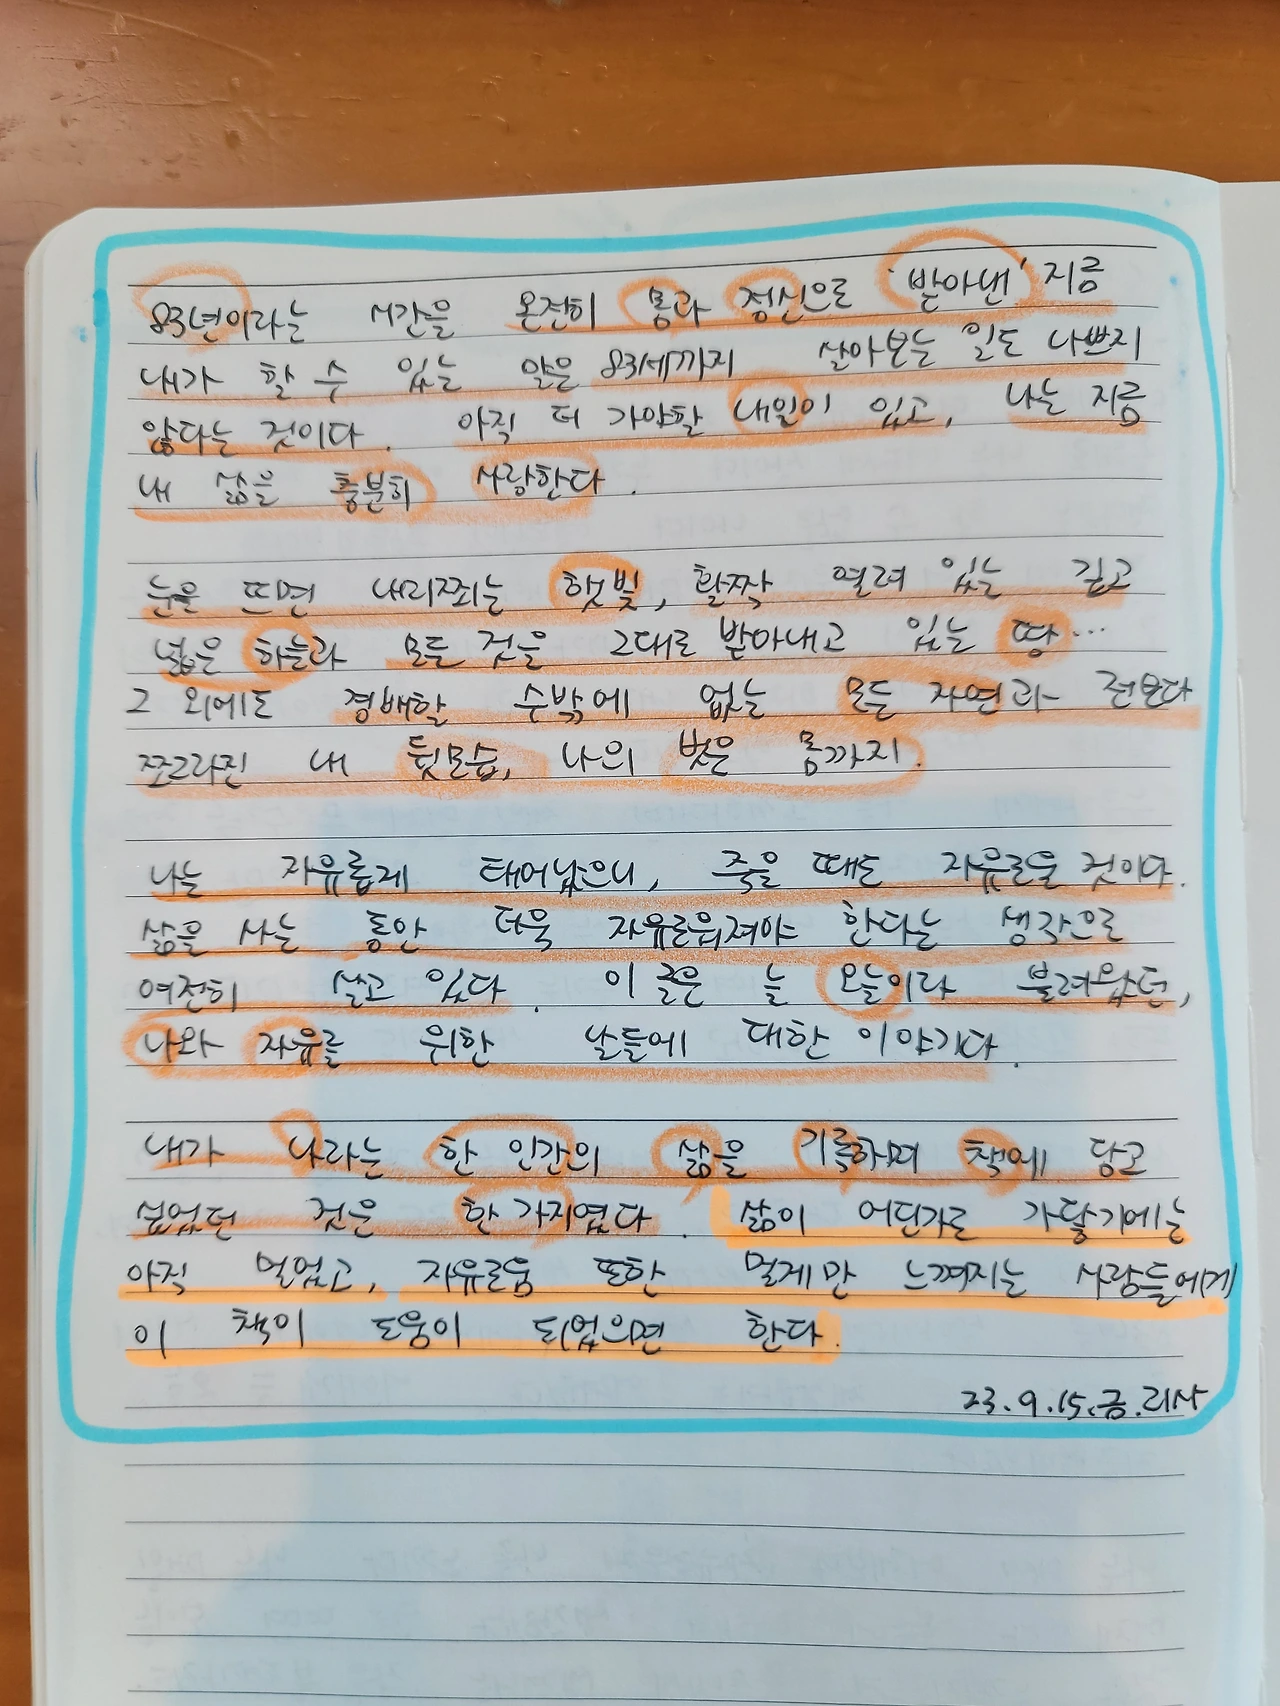 83년이라는 시간을 온전히 몸과 정신으로 '받아낸' 지금
내가 할 수 있는 말은 83세까지 살아보는 일도 나쁘지
않다는 것이다. 아직 더 가야할 내일이 있고, 나는 지금
내 삶을 충분히 사랑한다.
눈을 뜨면 내리쬐는 햇빛, 활짝 열려 있는 깊고
넓은 하늘과 모든 것을 그대로 받아내고 있는 땅...
그 외에도 경배할 수밖에 없는 모든 자연과 전부다
쪼그라진 내 뒷모습, 나의 벗은 몸까지.
나는 자유롭게 태어났으니, 죽을 때도 자유로울 것이다.
삶을 사는 동안 더욱 자유로워져야 한다는 생각으로
여전히 살고 있다. 이 글은 늘 오늘이라 불려왔던,
나와 자유를 위한 날들에 대한 이야기다.
내가 나라는 한 인간의 삶을 기록하며 책에 담고
싶었던 것은 한 가지였다. 삶이 어딘가로 가닿기에는
아직 멀었고, 자유로움 또한 멀게만 느껴지는 사람들에게
이 책이 도움이 되었으면 한다.
23.9.15.금.리사